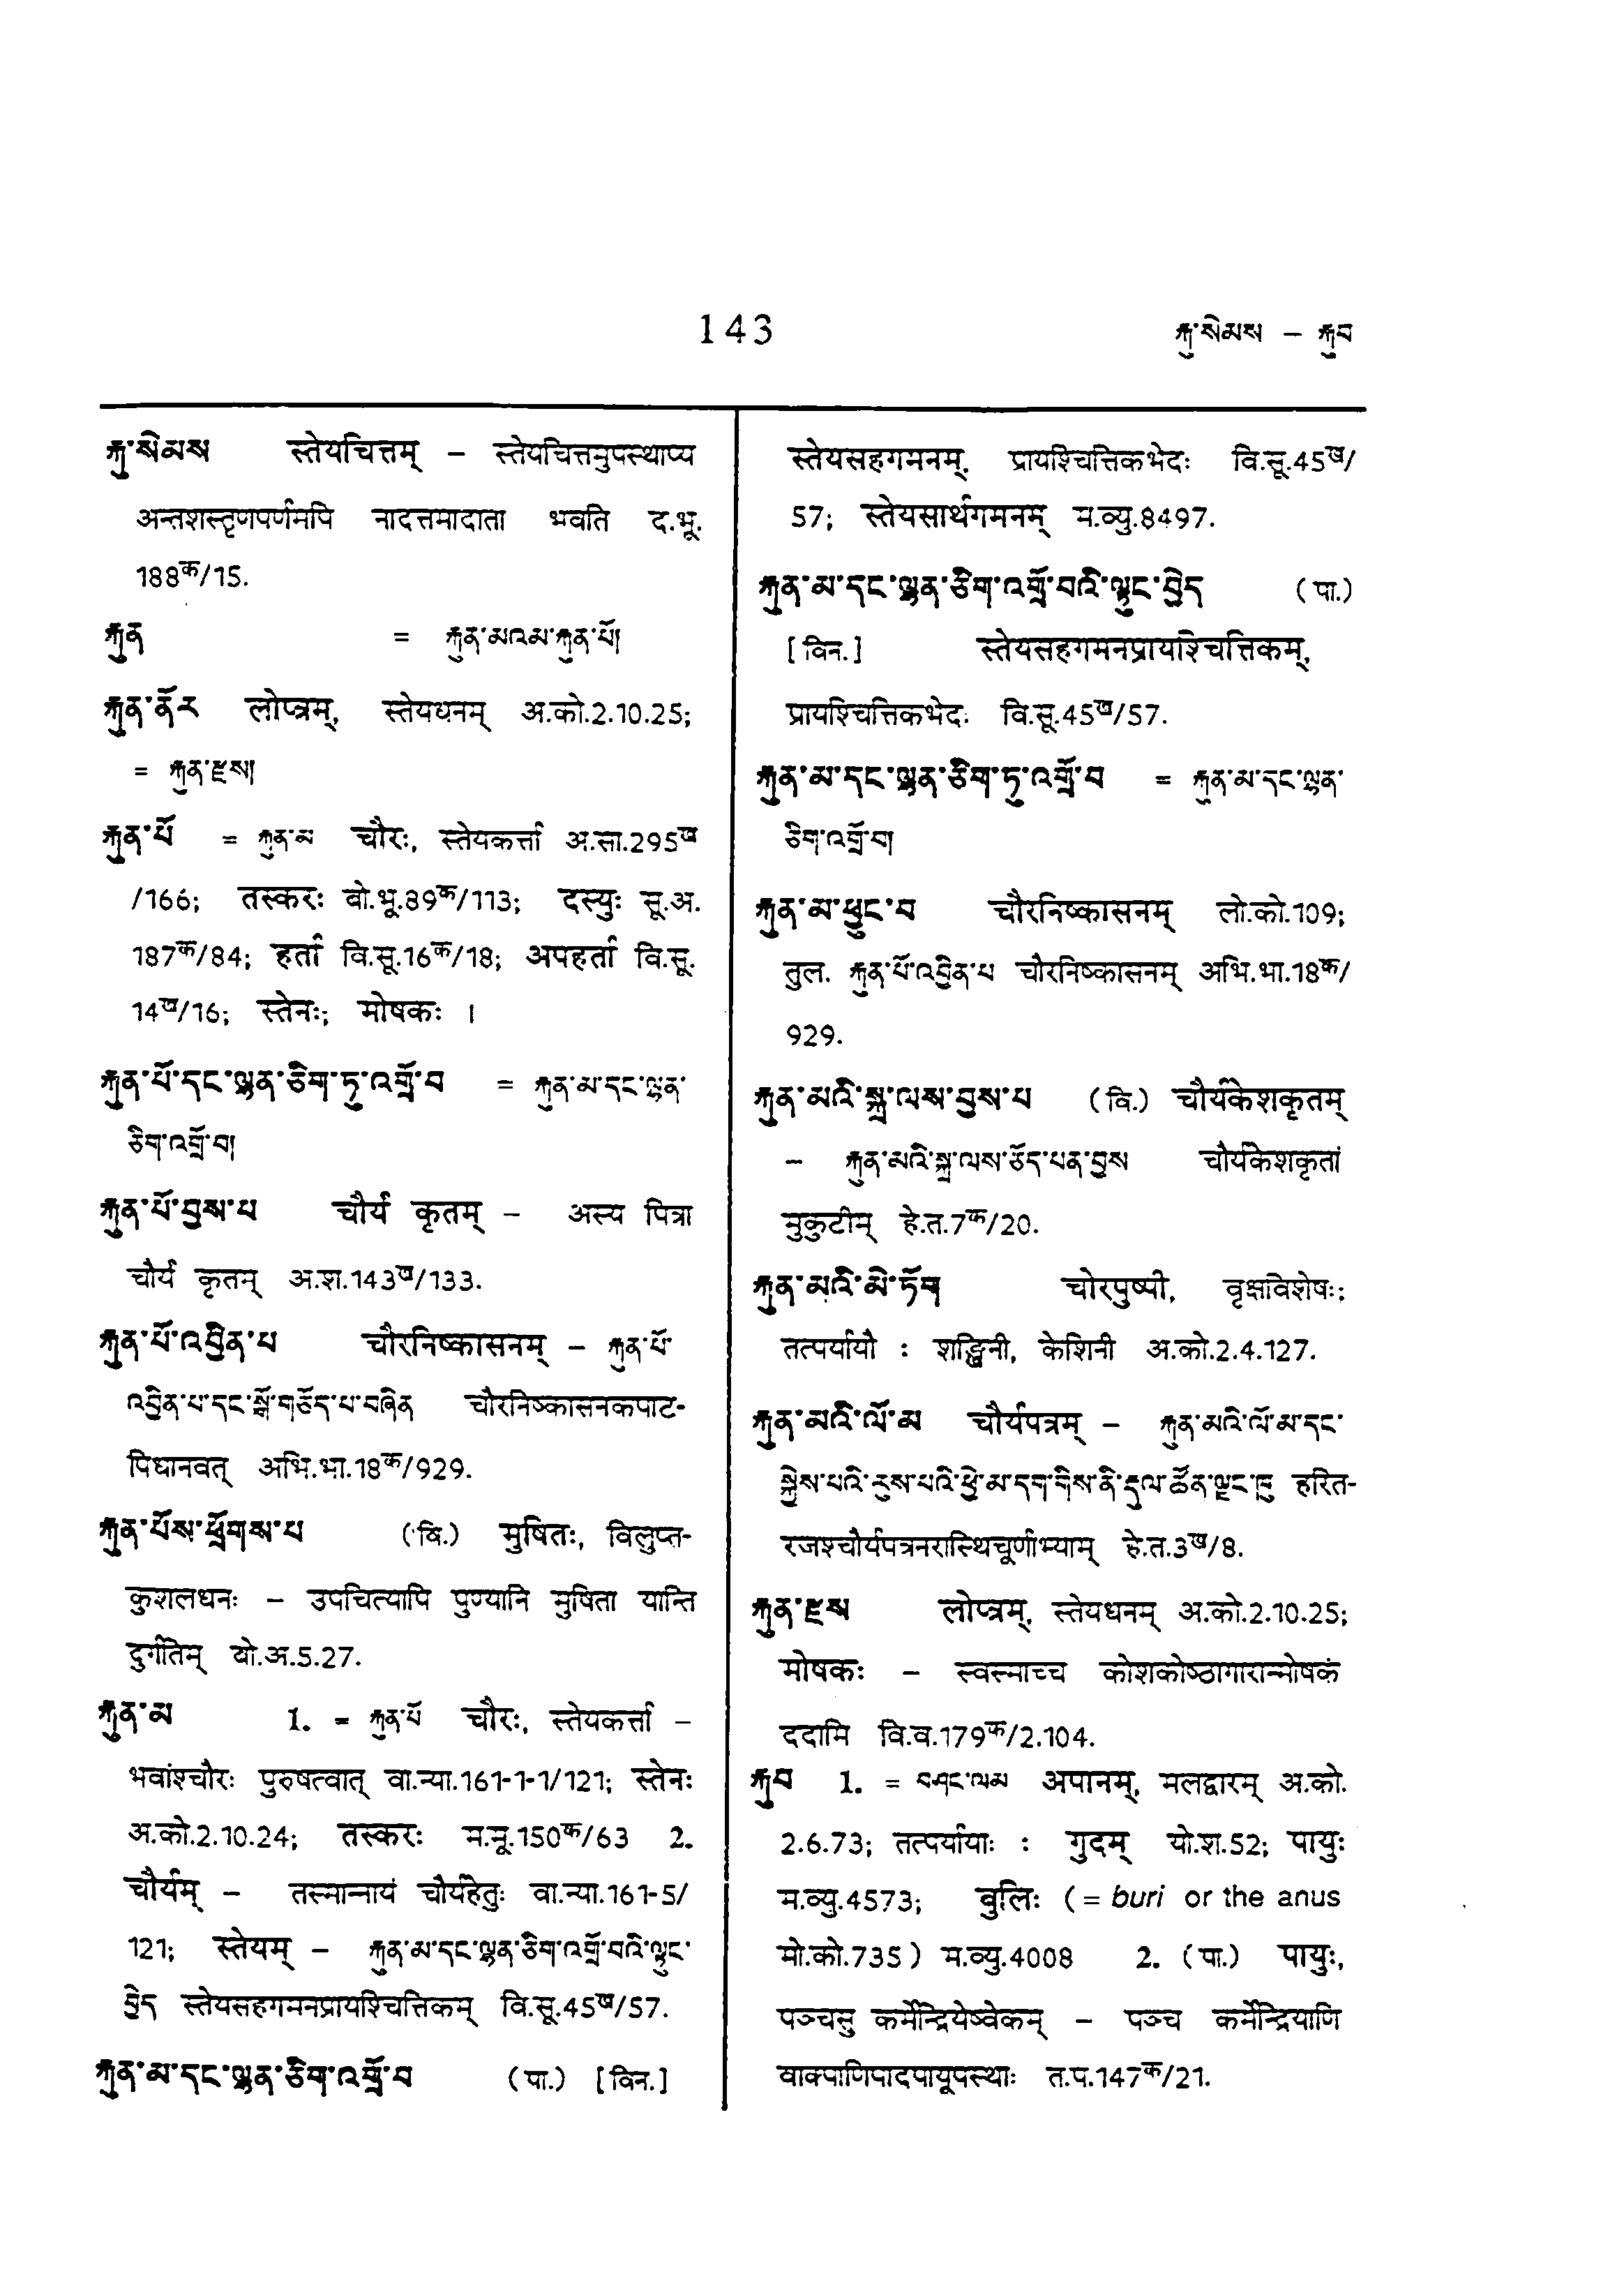 143
རྐུ་སེམས – རྐུབ
རྐུ་སེམས स्तेयचित्तम् – स्तेयचित्तमुपस्थाप्य
अन्तशस्तृणपर्णमपि नादत्तमादाता भवति द.भू.
188क/15.
རྐུན = རྐུན་མའམ་རྐུན་པོ།
རྐུན་ནོར लोप्त्रम्, स्तेयधनम् अ.को.2.10.25;
= རྐུན་རྫས།
རྐུན་པོ = རྐུན་མ चौरः, स्तेयकर्त्ता अ.सा.295ख
/166; तस्करः बो.भू.89क/113; दस्युः सू.अ.
187क/84; हर्ता वि.सू.16क/18; अपहर्ता वि.सू.
14ख/16; स्तेनः; मोषकः ।
རྐུན་པོ་དང་ལྷན་ཅིག་ཏུ་འགྲོ་བ = རྐུན་མ་དང་ལྷན་
ཅིག་འགྲོ་བ།
རྐུན་པོ་བྱས་པ चौर्यं कृतम् – अस्य पित्रा
चौर्यं कृतम् अ.श.143ख/133.
རྐུན་པོ་འབྱིན་པ चौरनिष्कासनम् – རྐུན་པོ་
འབྱིན་པ་དང་སྒོ་གཅོད་པ་བཞིན चौरनिष्कासनकपाट-
पिधानवत् अभि.भा.18क/929.
རྐུན་པོས་ཕྲོགས་པ (वि.) मुषितः, विलुप्त-
कुशलधनः – उपचित्यापि पुण्यानि मुषिता यान्ति
दुर्गतिम् बो.अ.5.27.
རྐུན་མ 1. = རྐུན་པོ चौरः, स्तेयकर्त्ता –
भवांश्चौरः पुरुषत्वात् वा.न्या.161-1-1/121; स्तेनः
अ.को.2.10.24; तस्करः म.मू.150क/63 2.
चौर्यम् – तस्मान्नायं चौर्यहेतुः वा.न्या.161-5/
121; स्तेयम् – རྐུན་མ་དང་ལྷན་ཅིག་འགྲོ་བའི་ལྟུང་
བྱེད स्तेयसहगमनप्रायश्चित्तिकम् वि.सू.45ख/57.
རྐུན་མ་དང་ལྷན་ཅིག་འགྲོ་བ (पा.) [विन.]
स्तेयसहगमनम्, प्रायश्चित्तिकभेदः वि.सू.45ख/
57; स्तेयसार्थगमनम् म.व्यु.8497.
རྐུན་མ་དང་ལྷན་ཅིག་འགྲོ་བའི་ལྟུང་བྱེད (पा.)
[विन.] स्तेयसहगमनप्रायश्चित्तिकम्,
प्रायश्चित्तिकभेदः वि.सू.45ख/57.
རྐུན་མ་དང་ལྷན་ཅིག་ཏུ་འགྲོ་བ = རྐུན་མ་དང་ལྷན་
ཅིག་འགྲོ་བ།
རྐུན་མ་ཕྱུང་བ चौरनिष्कासनम् लो.को.109;
तुल. རྐུན་པོ་འབྱིན་པ चौरनिष्कासनम् अभि.भा.18क/
929.
རྐུན་མའི་སྐྲ་ལས་བྱས་པ (वि.) चौर्यकेशकृतम्
– རྐུན་མའི་སྐྲ་ལས་ཅོད་པན་བྱས चौर्यकेशकृतां
मुकुटीम् हे.त.7क/20.
རྐུན་མའི་མེ་ཏོག चोरपुष्पी, वृक्षविशेषः;
तत्पर्यायौ : शङ्खिनी, केशिनी अ.को.2.4.127.
རྐུན་མའི་ལོ་མ चौर्यपत्रम् – རྐུན་མའི་ལོ་མ་དང་
སྐྱེས་པའི་རུས་པའི་ཕྱེ་མ་དག་གིས་ནི་རྡུལ་ཚོན་ལྗང་ཁུ हरित-
रजश्चौर्यपत्रनरास्थिचूर्णाभ्याम् हे.त.3ख/8.
རྐུན་རྫས लोप्त्रम्, स्तेयधनम् अ.को.2.10.25;
मोषकः – स्वस्माच्च कोशकोष्ठागारान्मोषकं
ददामि वि.व.179क/2.104.
རྐུབ 1. = བཤང་ལམ अपानम्, मलद्वारम् अ.को.
2.6.73; तत्पर्यायाः : गुदम् यो.श.52; पायुः
म.व्यु.4573; बुलिः (= buri or the anus
मो.को.735) म.व्यु.4008 2. (पा.) पायुः,
पञ्चसु कर्मेन्द्रियेष्वेकम् – पञ्च कर्मेन्द्रियाणि
वाक्पाणिपादपायूपस्थाः त.प.147क/21.